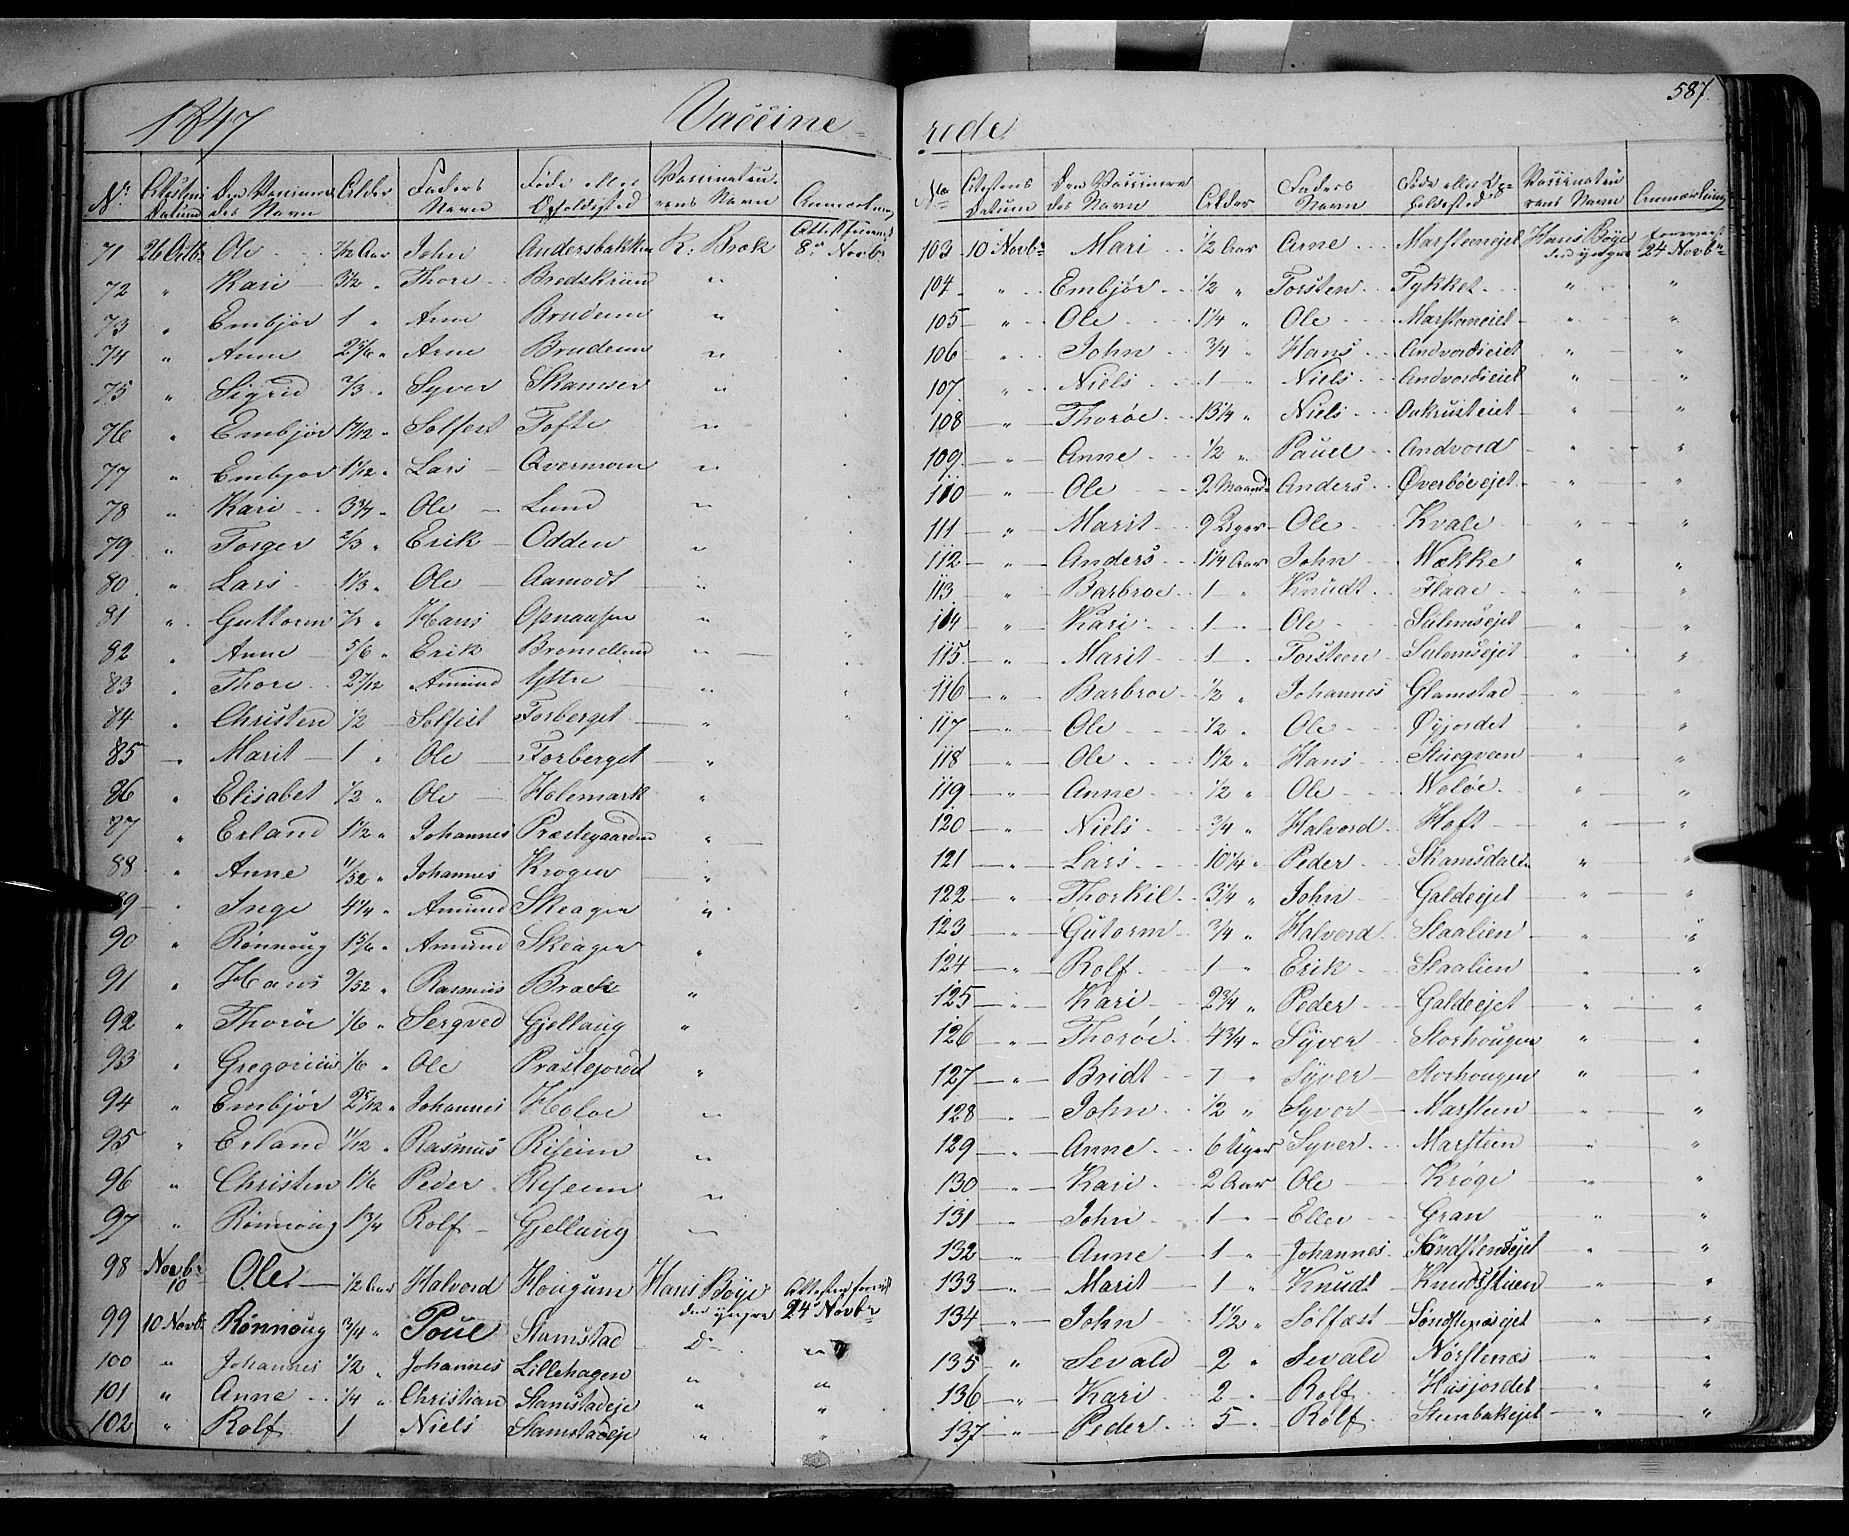 587.
1847 Vaccine-
No. Attestens Datum Den Vaccineredes Navn Alder Faders Navn Føde eller Opholdssted Vaccinateurens Navn Anmærkning
71 26 Octbr Ole 1/2 Aar John Andersbakken R. Bræk 8de Novbr
72 " Kari 3 1/2 " Thore Bredskriud "
73 " Embjør 1 " Arne Brudeun "
74 " Anne 2 5/6 " Arne Brudeun "
75 " Sigrid 2/3 " Syver Skamser "
76 " Embjør " Solfest Tofte "
77 " Embjør " Lars Qvermoen "
78 " Kari 3 3/4 " Ole Lund "
79 " Torger 2/3 " Erik Odden "
80 " Lars 1 1/3 " Ole Aamodt "
81 " Guttorm " Hans "
82 " Anne 5/6 " Erik "
83 " Thore 2 7/12 Amund Yttre "
84 " Christen 1/2 Solfest Forberget "
85 " Marit 1 " Ole Forberget "
86 " Elisabet 1/2 " Ole Holemark "
87 " Erland 1 1/2 " Johannes Præstegaarden "
88 " Anne 11/52 " Johannes Krogen "
89 " Inge 4 1/4 " Amund Skeagen "
90 " Rønnoug 1 5/6 " Amund Skeagen "
91 " Hans 9/52 " Rasmus Bræk "
92 " Thorøe 1/6 " Sergved Gjellaug "
93 " Gregorius 1/6 " Ole Præstejordet "
94 " Embjør 2 5/12 " Johannes Holøe "
95 " Erland 1/12 " Rasmus Riseim "
96 " Christen 1 1/6 Peder Riseim "
97 " Rønnoug 1 3/4 Rolf Gjellaug "
98 Novbr 10 Ole 1/2 Aar Halvord Hougum Hans Bøye den yngre 24de Novbr
99 10 Novbr Rønnoug 3/4 " Poul Stamstad Do "
100 " Johannes 1/2 " Johannes Lillehagen " "
101 " Anne 1/4 " Christian Stamstadeje " "
102 " Rolf 1 Niels Stamstadeje " "
rede.
No. Attestens Datum Den Vaccineredes Navn Alder Faders Navn Føde eller Opholdssted Vaccinateurens Navn Anmærkning
103 10 Novbr Mari 1/2 Aar Arne Marsteenejet Hans Bøye den yngre 24 Novbr
104 " Embjør 1/2 " Torsten Tykket " "
105 " Ole 1 1/4 " Ole Marsteneiet " "
106 " John 3/4 " Hans Andvordieiet " "
107 " Niels 1 " Niels Andvordieiet " "
108 " Thorøe 13 1/4 " Niels Aukrusteiet " "
109 " Anne 1/2 " Pauel Andvord " "
110 " Ole 2 Maaned Anders Øverbøeejet " "
111 " Marit 9 Uger Ole Kvale " "
112 " Anders 1 1/4 Aar John Nække " "
113 " Barbroe 1 " Knudt Flaae " "
114 " Kari 1 " Ole Sulemsejet " "
115 " Marit 1 " Torsteen Sulemsejet " "
116 " Barbroe 1/2 " Johannes Glamstad " "
117 " Ole 1/2 " Ole Øyjordet " "
118 " Ole 1 1/2 " Hans Stuegveen " "
119 " Anne 1/2 " Ole Noløe " "
120 " Niels 3/4 " Halvord Hoft " "
121 " Lars 10 1/4 " Peder Skamsdalen " "
122 " Thorkil 3 1/4 " John Galdeejet " "
123 " Gutorm 3/4 " Halvord Staalien " "
124 " Rolf 1 " Erik Staalien " "
125 " Kari 2 3/4 " Peder Galdeejet " "
126 " Thorøe 4 3/4 " Syver Storhougen " "
127 " Bridt 7 " Syver Storhougen " "
128 " John 1/2 " Syver Marstien " "
129 " Anne 6 Uger Syver Marstien " "
130 " Kari 2 Aar Ole Krøge " "
131 " John 1 " Eller Gran " "
132 " Anne 1 " Johannes Søndstenæsejet " "
133 " Marit 1 " Knudt Knudsstuen " "
134 " John 1 1/2 " Solfæst Søndstenæsejet " "
135 " Sevald 2 " Sevald Nørstenæs " "
136 " Kari 2 " Rolf Husjordet " "
137 " Peder 5 " Rolf Stenbakejet " "